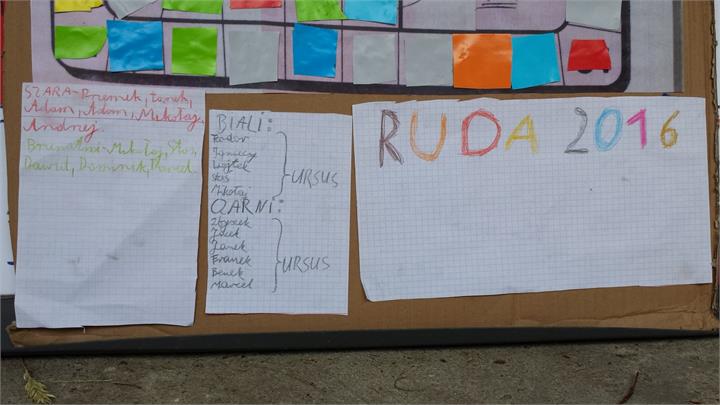 SZARA-Przemek, Janek,
Adam, Adam, Mikołaj,
Andrzej.
Brunatni-Mikołaj, Staś,
Dawid, Dominik, Dawid.
BIALI:
Fedor
Ignacy
Wojtek
Staś
Mikołaj
URSUS
QARNI:
Zbyszek
Jacek
Janek
Franek
Benek
Marcel
URSUS
RUDA 2016